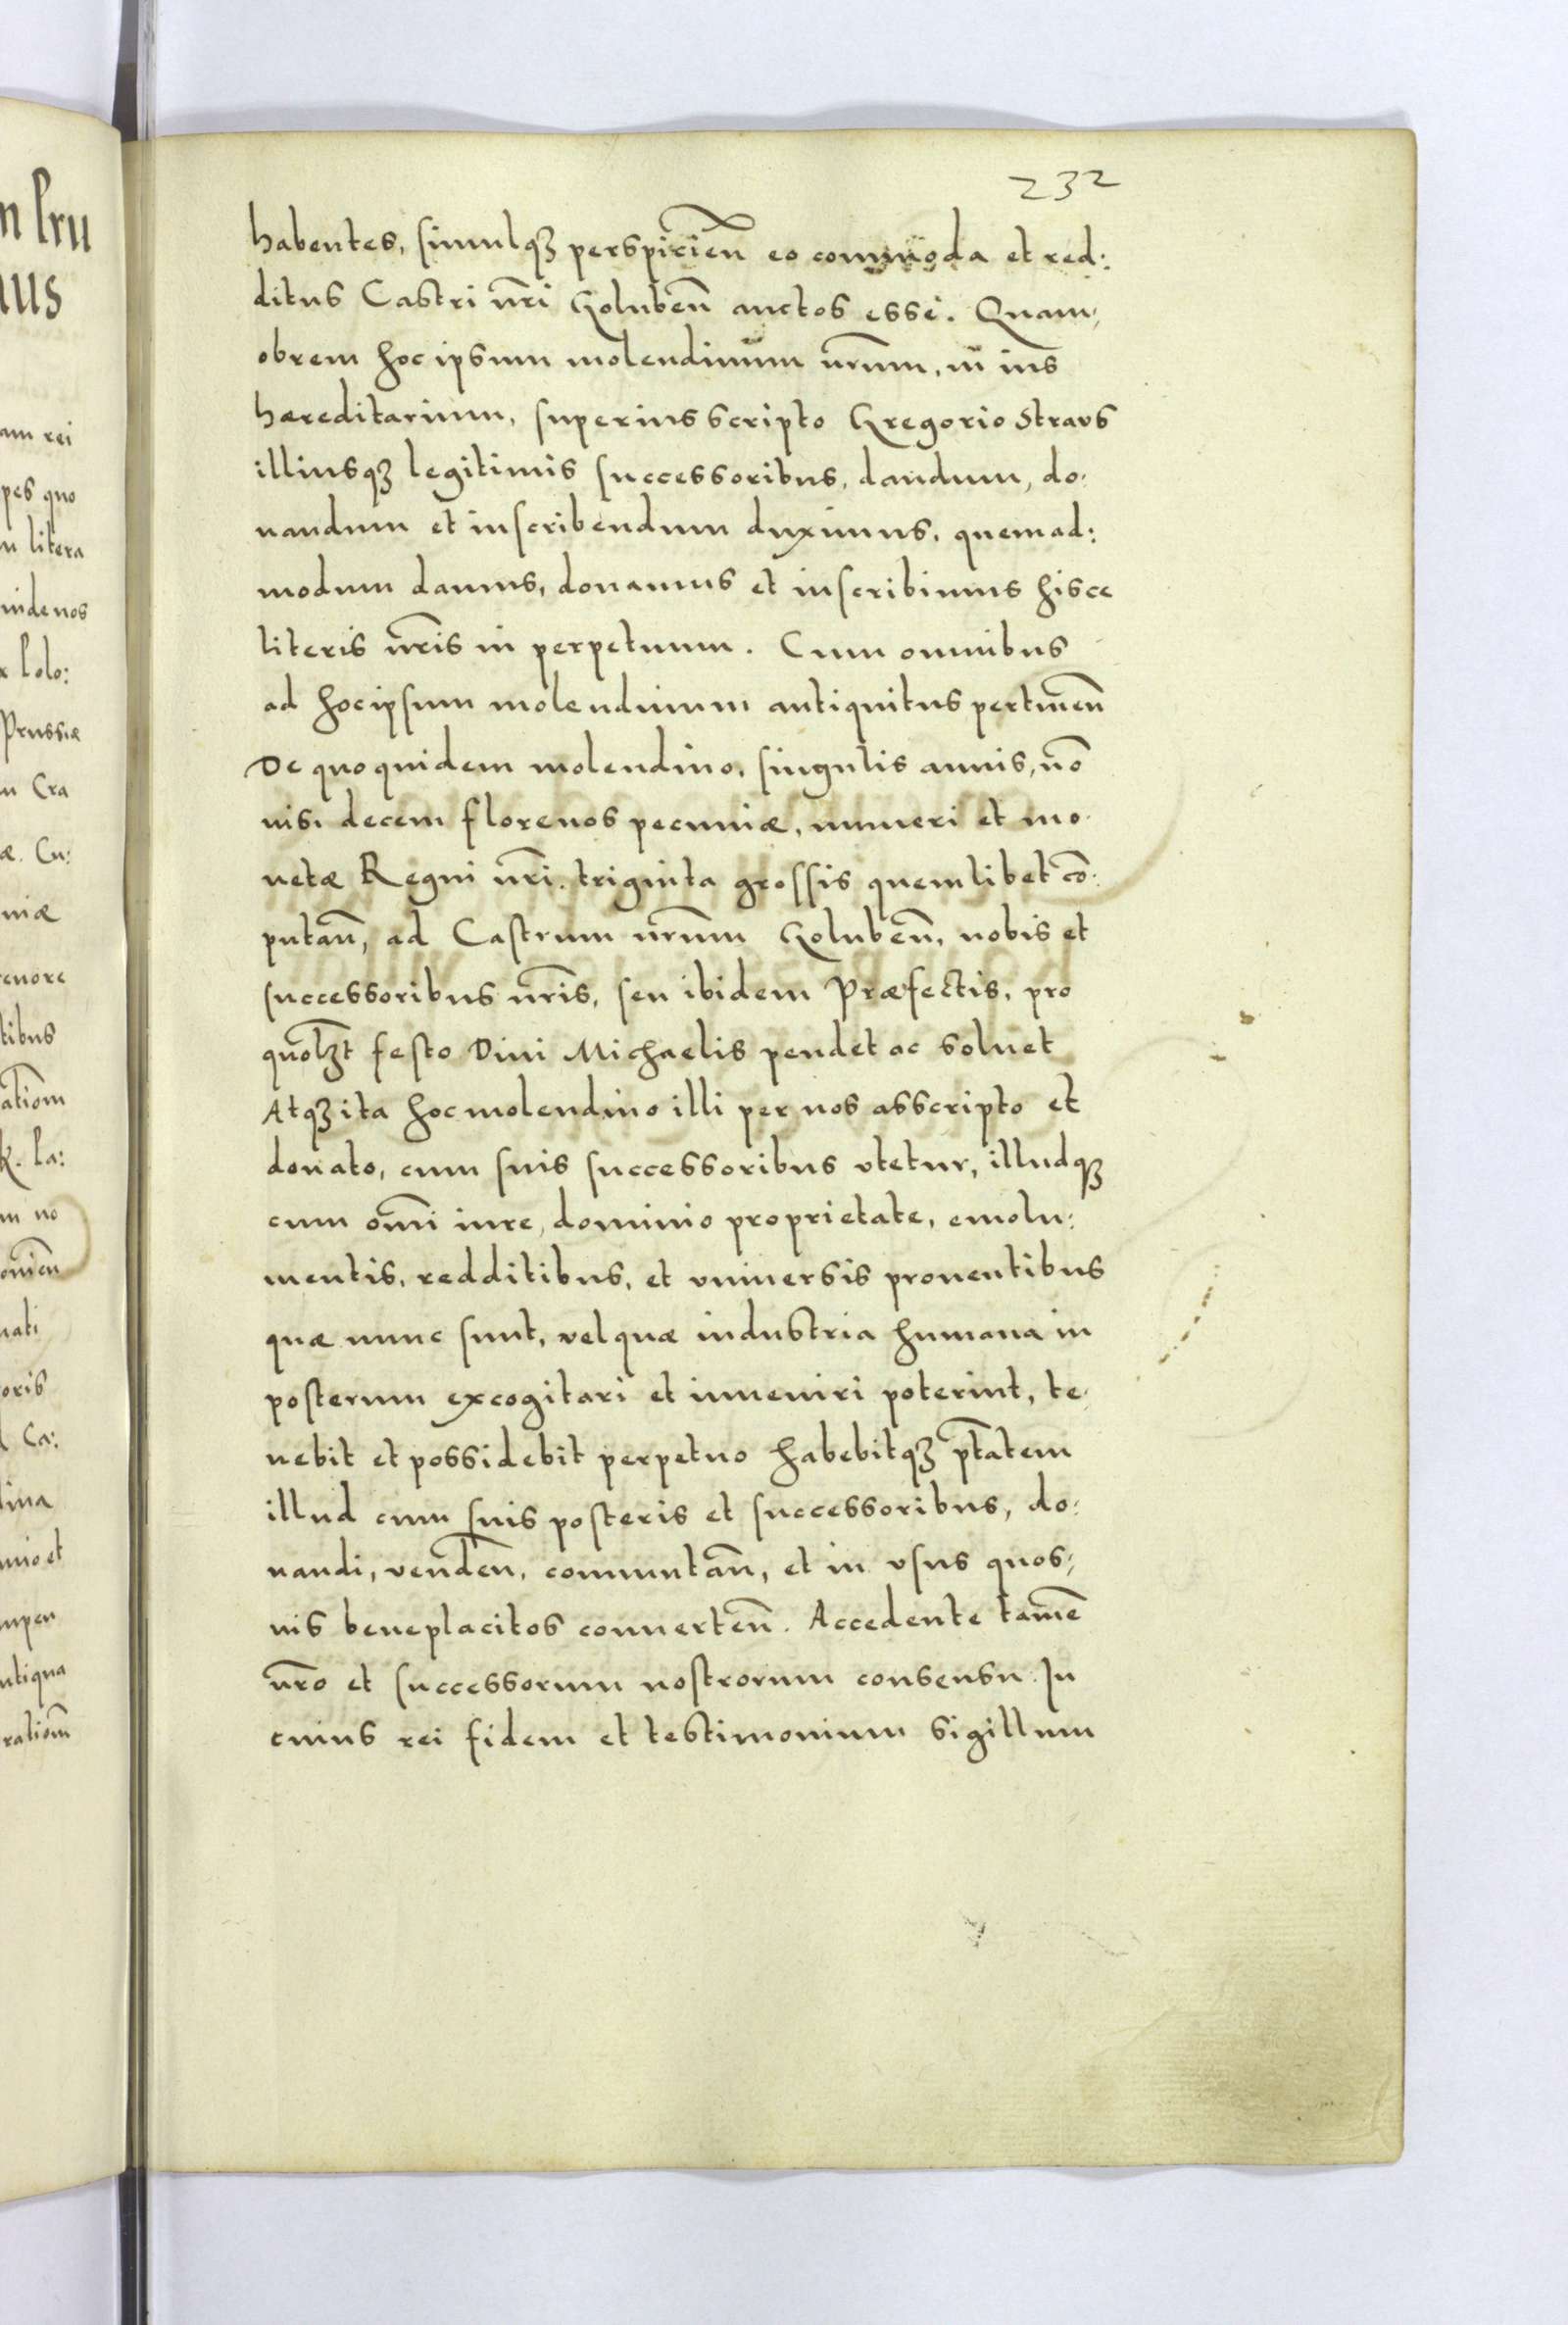 232
habentes, simulqꝫ perspicien̄ eo commoda et red:
ditus Castri nr̄i Goluben̄ auctos esse. Quam,
obrem hoc ipsum molendinum nr̄um, in ius
hæreditarium, superius scripto Gregorio Straus
illiusqꝫ legitimis successoribus, dandum, do,
nandum et inscribendum duximus, quemad:
modum damus, donamus et inscribimus hisce
literis nr̄is in perpetuum. Cum omnibus
ad hoc ipsum molendinum antiquitus pertinen̄
De quo quidem molendino, singulis annis, nō
nisi decem florenos pecuniæ, numeri et mo,
netæ Regni nr̄i. triginta grossis quemlibet cō,
putan̄, ad Castrum nr̄um Goluben̄, nobis et
successoribus nr̄is, seu ibidem Præfectis, pro
quolꝫt festo Diui Michaelis pendet ac soluet
Atqꝫ ita hoc molendino illi per nos asscripto et
donato, cum suis successoribus vtetur, illudqꝫ
cum om̄i iure, dominio proprietate, emolu:
mentis, redditibus, et vniuersis prouentibus
quæ nunc sunt, vel quæ industria humana in
posterum excogitari et inueniri poterint, te,
nebit et possidebit perpetuo habebitqꝫ pt̄atem
illud cum suis posteris et successoribus, do,
nandi, venden̄, commutan̄, et in vsus quos,
uis beneplacitos conuerten̄. Accedente tamē
nr̄o et successorum nostrorum consensu. In
cuius rei fidem et testimonium sigillum